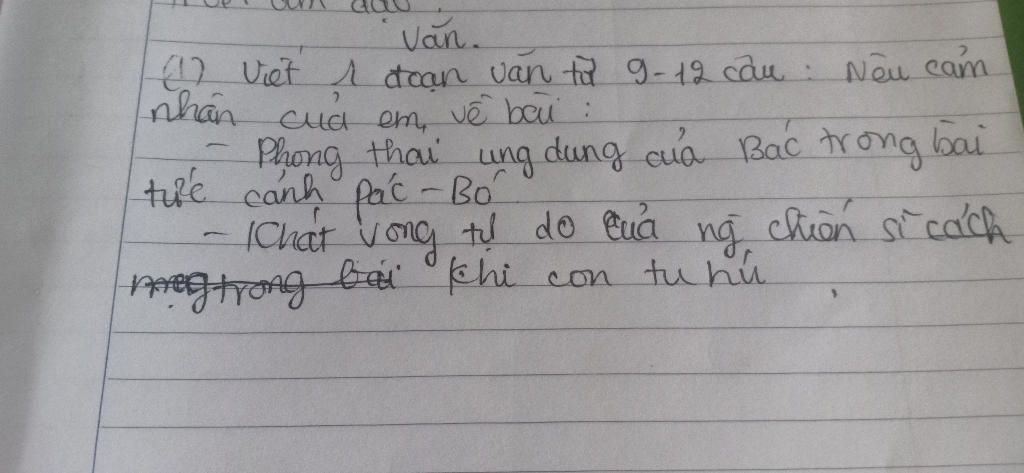 Văn.
(1) Viết 1 đoạn văn từ 9-12 câu : Nêu cảm
nhận của em, về bài :
- Phong thái ung dung của Bác trong bài
tức cảnh Pác-Bó
- Khát vọng tự do của ng chiến sĩ cách
mạng trong bài khi con tu hú